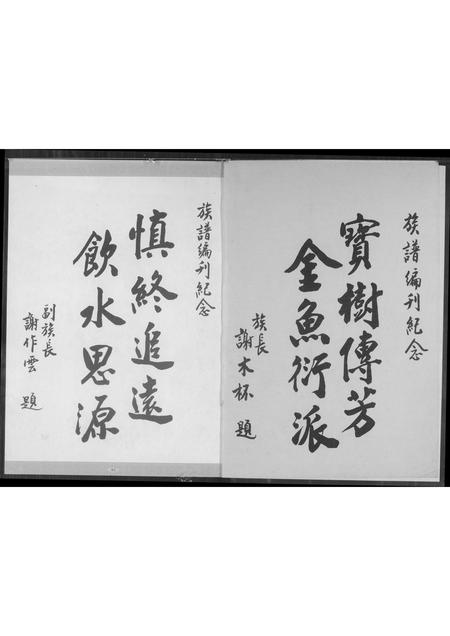 族譜編刊紀念
寶樹傳芳
金魚衍派
族長
謝木杯 題
族譜編刊紀念
慎終追遠
飲水思源
副族長
謝作雲 題